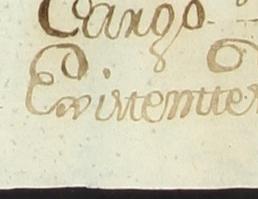 Cargo
Existentte